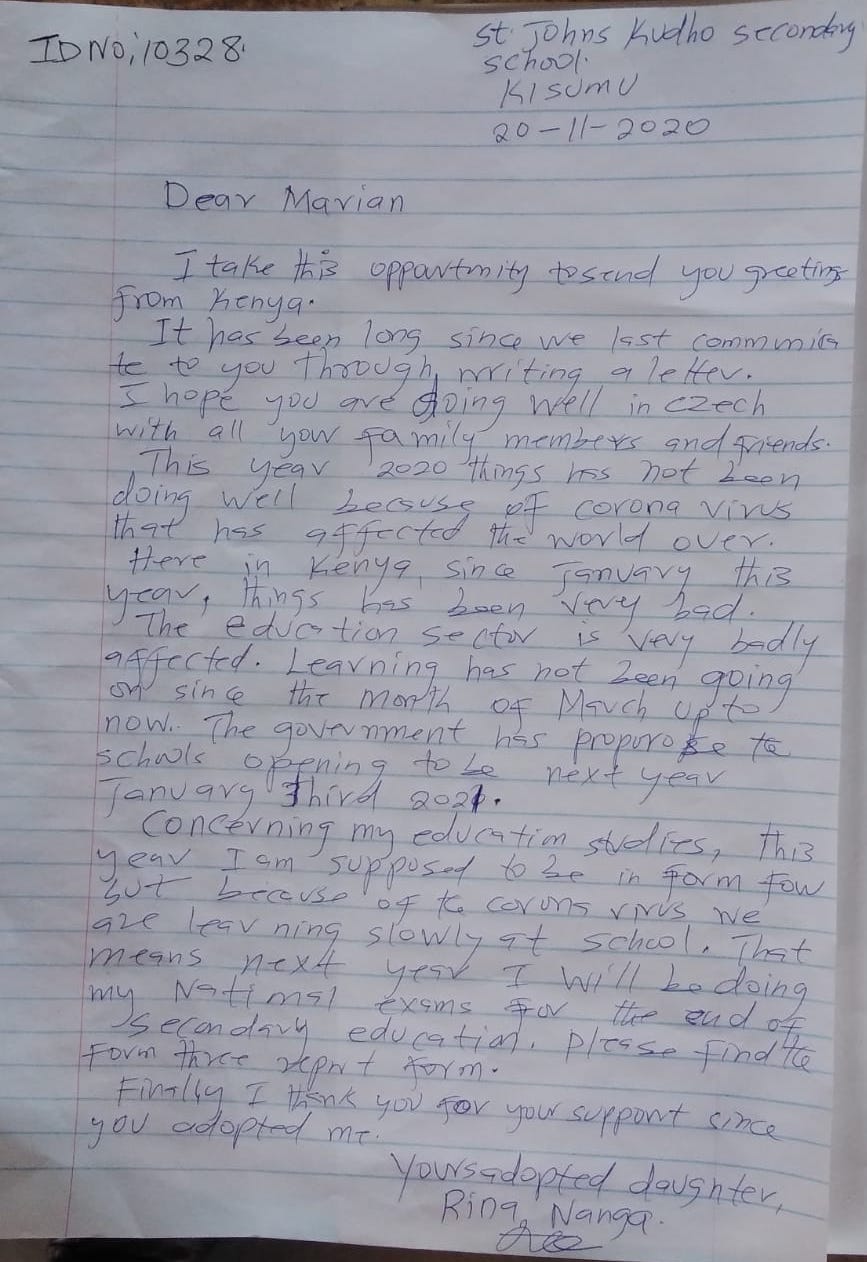 IDNo; 10328.
St. Johns Kudho secondary
school.
KISUMU
20-11-2020
Dear Marian
I take this oppartmity to send you greetings
from Kenya.
It has been long since we last communica
te to you through writing a letter.
I hope you are doing well in czech
with all your family members and friends.
This year 2020 things has not been
doing well because of corona virus
that has affected the world over.
Here in Kenya, since January this
year, things has been very bad.
The education sector is very badly
affected. Learning has not been going
on since the month of March up to
now. The government has the
schools opening to be next year
January Third 2021.
Concerning my education studies, this
year I am supposed to be in form four
but because of the corona virus we
are learning slowly at school. That
means next year I will be doing
my National exams for the end of
secondary education. please find the
Form three report form.
Finally I thank you for your support since
you adopted me.
Yours adopted daughter,
Rina Nanga.